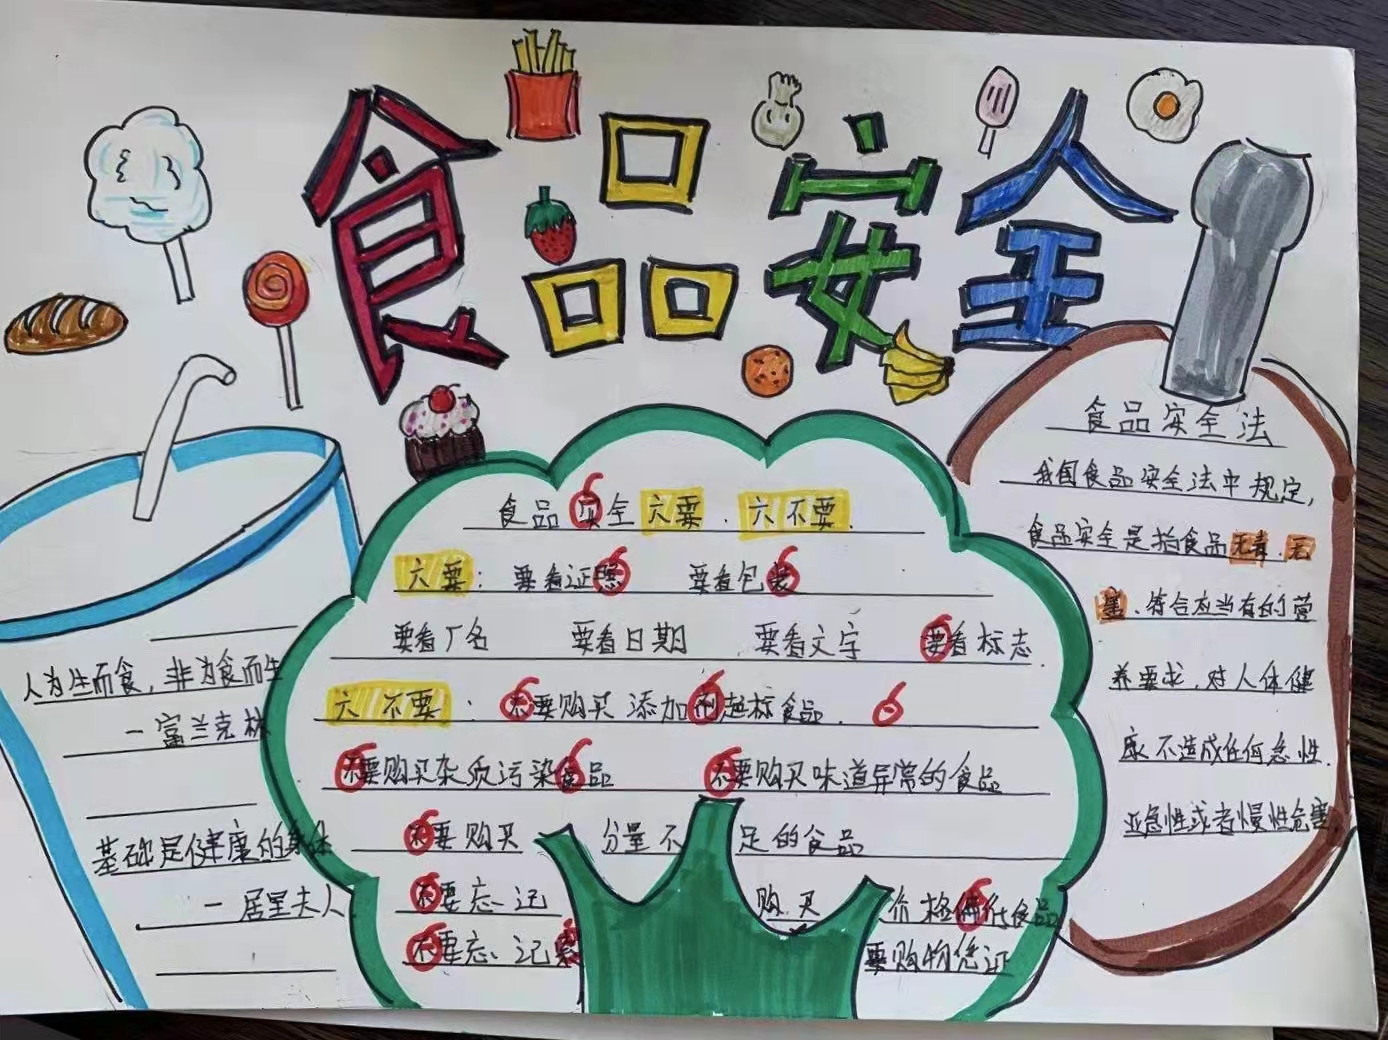 食品安全
食品安全六要.六不要.
六要：要看证照 要看包装
要看厂名 要看日期 要看文字 要看标志.
六不要：不要购买添加剂超标食品.
不要购买杂质污染食品 不要购买味道异常的食品
不要购买 分量不足的食品
不要忘记 购买 价格偏低食品
不要忘记索 要购物凭证
人为生而食，非为食而生
一富兰克林
基础是健康的身体
一居里夫人
食品安全法
我国食品安全法中规定，
食品安全是指食品无毒.无
害、符合应当有的营
养要求，对人体健
康不造成任何急性.
亚急性或者慢性危害